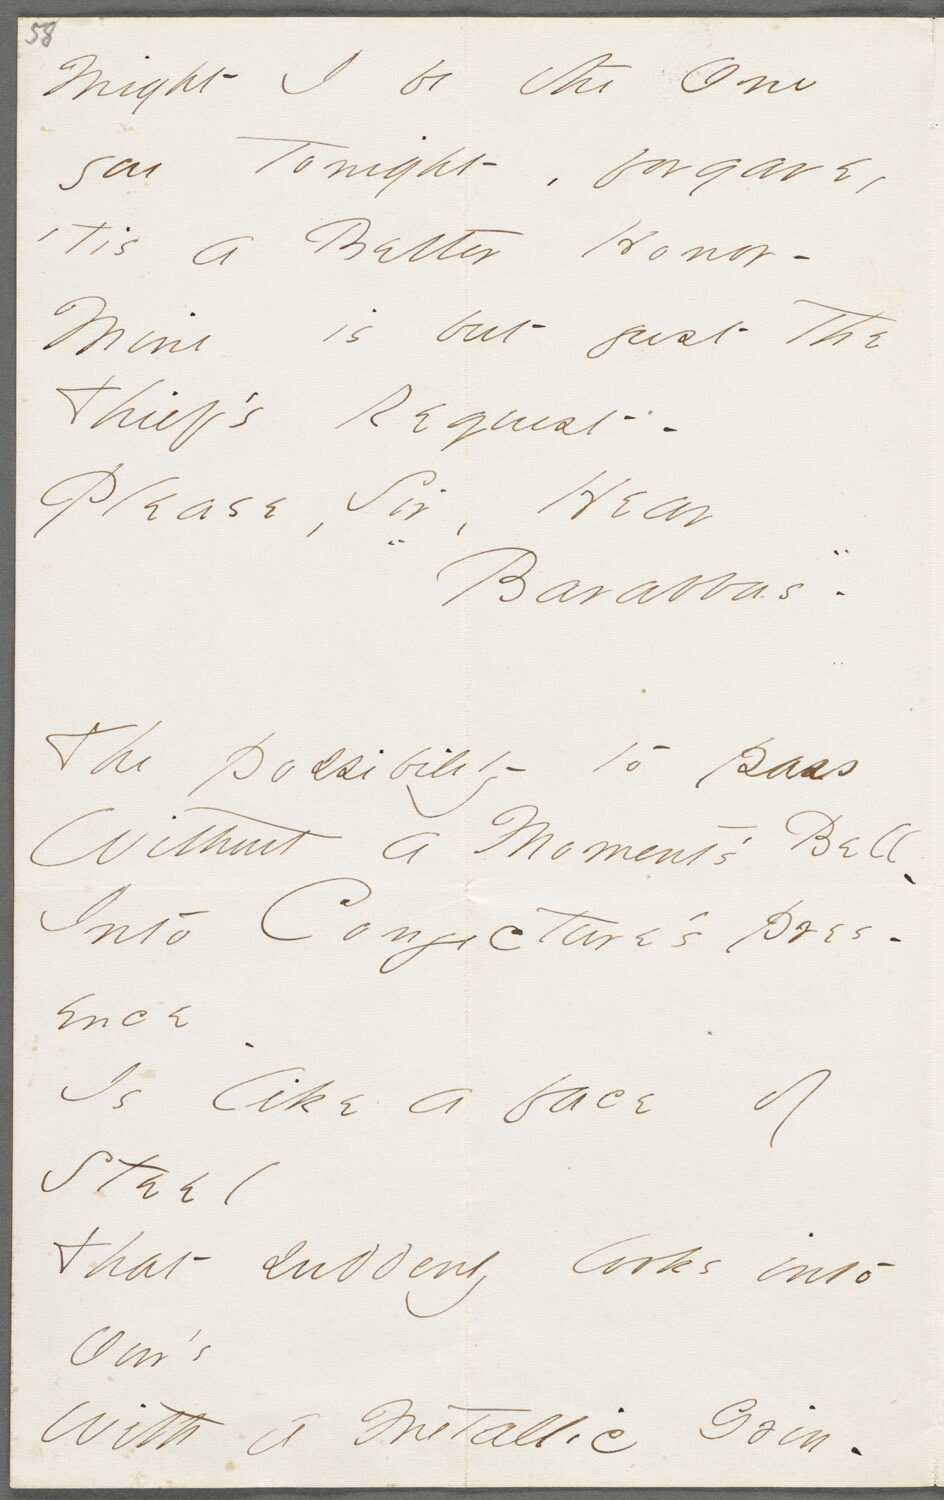 58
Might I be the One
you Tonight, forgave,
'tis a Better Honor -
Mine is but just The
Thief's Request -
Please, Sir, Hear
"Barabbas" -
The possibility to pass
Without a Moment's Bell,
Into Conjecture's pres-
ence
Is like a face of
Steel
That suddenly looks into
Our's
With a Metallic Grin.